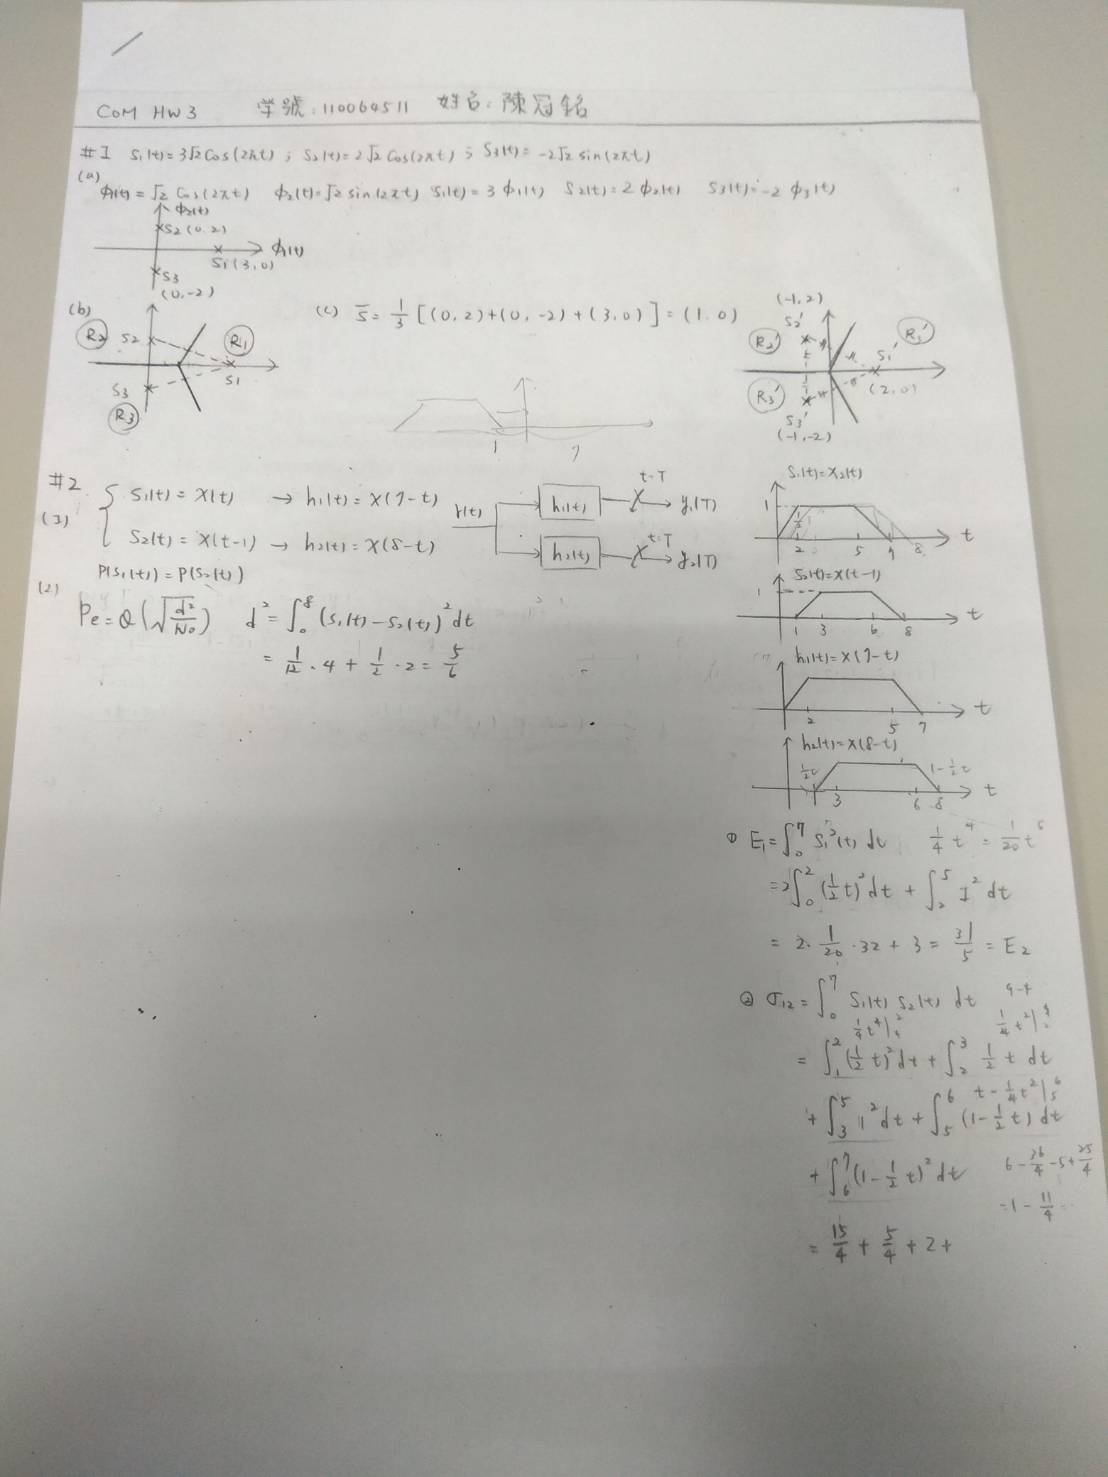 COM HW3 学號:110064511 姓名:陳冠銘
#1 S1(t)=3√2 cos(2πt) ; S2(t)=2√2 cos(2πt) ; S3(t)= -2√2 sin(2πt)
(a)
ϕ1(t)=√2 cos(2πt) ϕ2(t)=√2 sin(2πt) S1(t)=3ϕ1(t) S2(t)=2ϕ2(t) S3(t)=-2ϕ3(t)
ϕ2(t)
S2(0,2)
ϕ1(t)
S1(3,0)
S3
(0,-2)
(b)
R2
S2
R1
S1
S3
R3
(c) S̄= 1/3 [(0,2)+(0,-2)+(3,0)]=(1,0)
(-1,2)
S2'
R2'
R1'
S1'
(2,0)
R3'
S3'
(-1,-2)
1 7
#2
(3)
S1(t)=X(t) → h1(t)=X(7-t)
S2(t)=X(t-1) → h2(t)=X(8-t)
P(S1(t))=P(S2(t))
r(t)
h1(t)
t=T
y1(T)
h2(t)
t=T
y2(T)
(2)
Pe=Q(√(d²/N0)) d²=∫₀⁸(S1(t)-S2(t))²dt
= 1/12 · 4 + 1/2 · 2 = 5/6
S1(t)=X2(t)
1
2 5 7 8 t
S2(t)=X(t-1)
1
1 3 6 8 t
h1(t)=X(7-t)
2 5 7 t
h2(t)=X(8-t)
1/2t 1-1/2t
3 6 8 t
① E1=∫₀⁷ S1²(t) dt 1/4 t⁴ = 1/20 t⁵
=2∫₀²(1/2t)²dt + ∫₂⁵ 1² dt
= 2 · 1/20 · 32 + 3 = 31/5 = E2
② σ12=∫₀⁷ S1(t) S2(t) dt 9-4
= ∫₁²(1/2 t)²dt + ∫₂³ 1/2 t dt
t - 1/4t²|₅⁶
+ ∫₃⁵ 1² dt + ∫₅⁶ (1-1/2t) dt
+ ∫₆⁷(1-1/2 t)²dt 6-36/4-5+25/4
=1-11/4
= 15/4 + 5/4 + 2 +